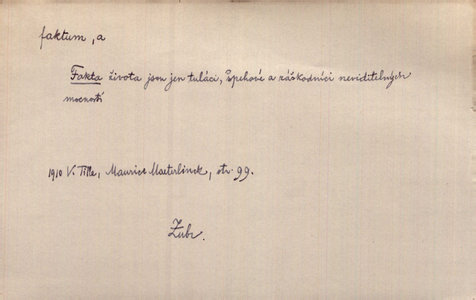 faktum, a
Fakta života jsou jen tuláci, špehové a záškodníci neviditelných
mocností
1910 V. Tille, Maurice Maeterlinck, str. 99.
Zubr.